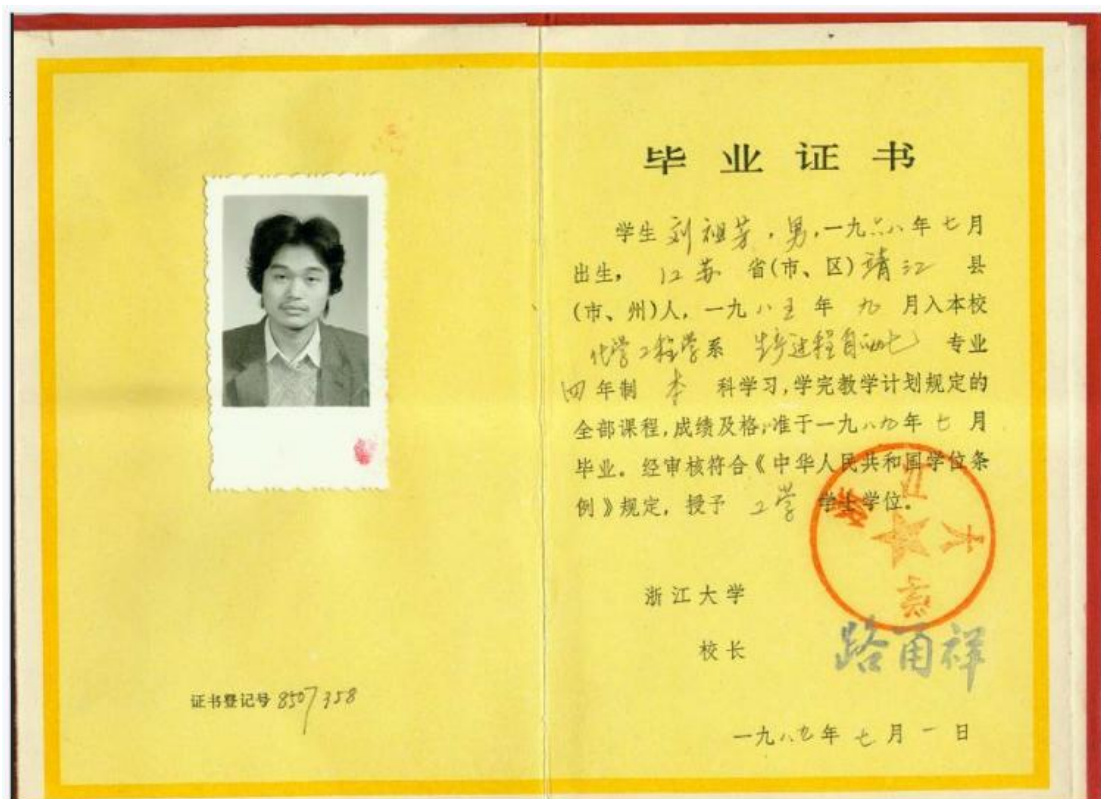 证书登记号 8507358
毕业证书
学生 刘祖芳，男，一九六八年七月
出生，江苏 省(市、区)靖江 县
(市、州)人，一九八五年 九 月入本校
化学工程学系 生产过程自动化 专业
四年制 本 科学习，学完教学计划规定的
全部课程，成绩及格，准于一九八九年七月
毕业。经审核符合《中华人民共和国学位条
例》规定，授予 工学 学士学位。
浙江大学
浙江大学
校长
路甬祥
一九八九年七月一日